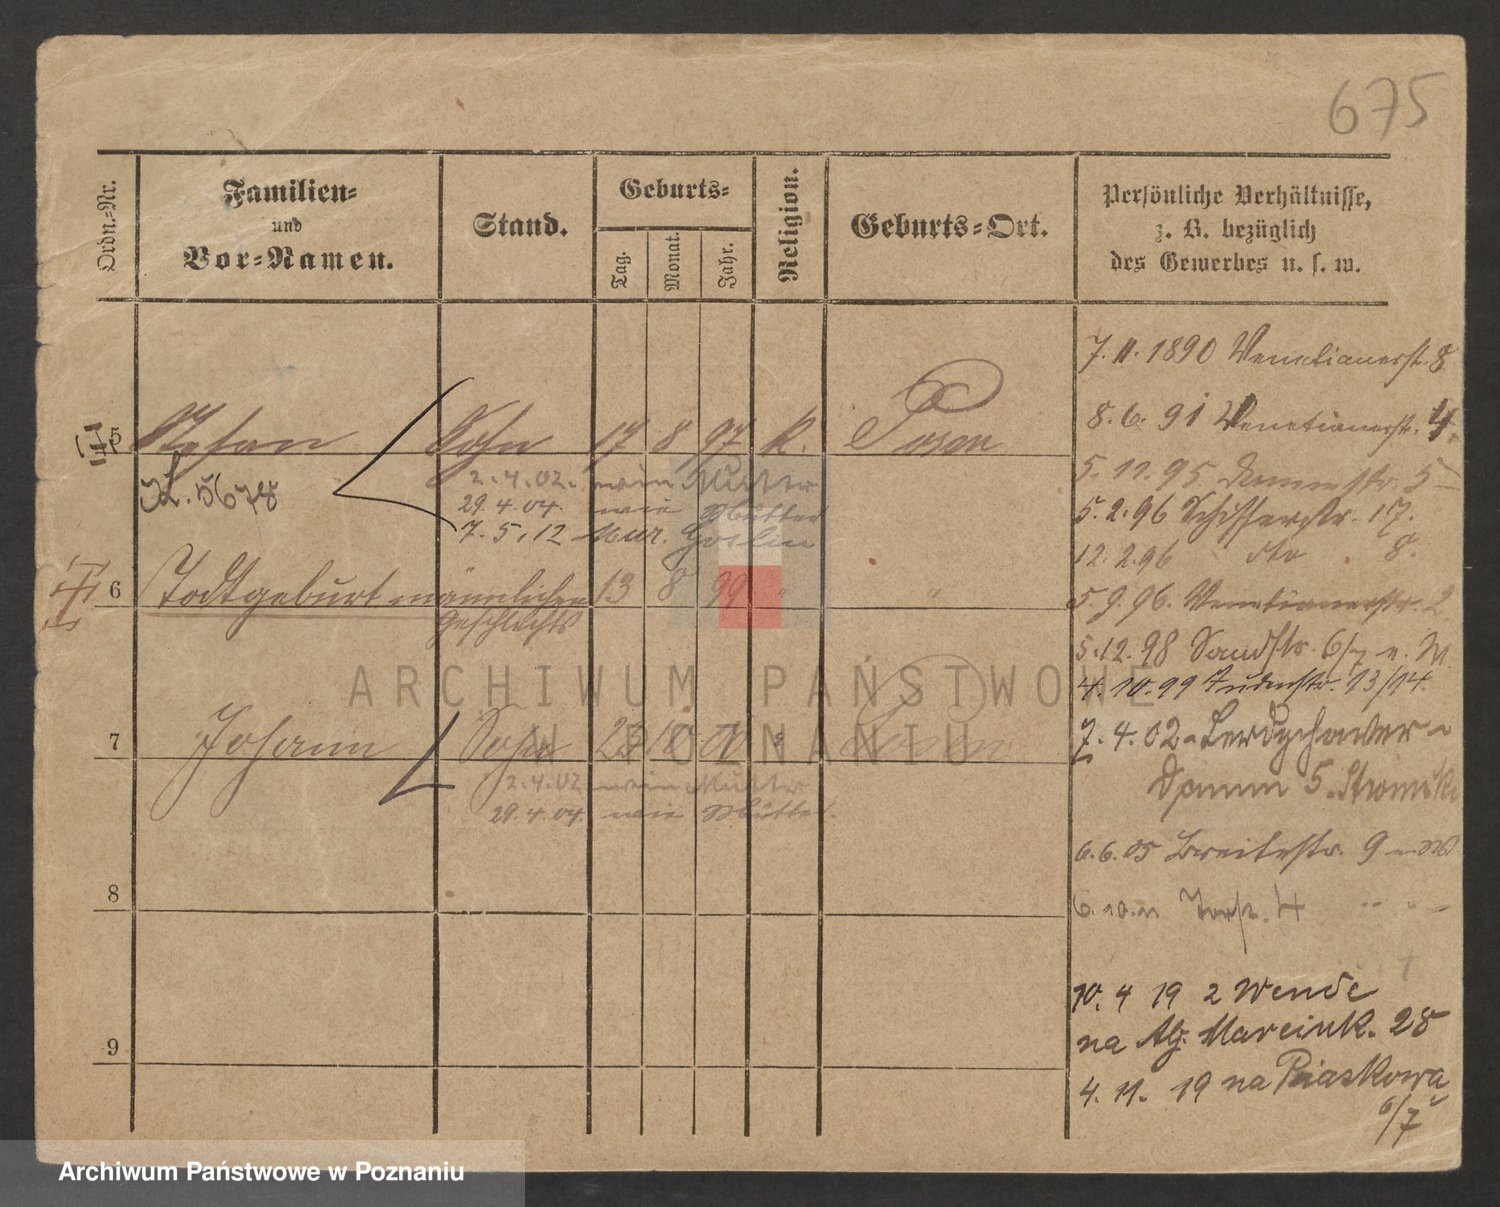 675
Ordn.-Nr.
Familien-
und
Vor-Namen.
Stand.
Geburts-
Tag.
Monat.
Jahr.
Religion.
Geburts-Ort.
Persönliche Verhältnisse,
z. B. bezüglich
des Gewerbes u. s. w.
7. 11. 1890 Venetianerstr. 8
8. 6. 91 Venetianerstr. 4.
5 Stefan Sohn 17 8 97 K. Posen
5. 11. 95
2. 4. 02. wie Mutter
5678
29. 4. 04. wie Mutter
5. 2. 96 Schifferstr. 17.
7. 5. 12 Mur. Goslin
12. 2. 96 dto 8.
6 Todtgeburt männlichen 13 8 99 " "
Geschlechts
5. 9. 96. Venetianerstr. 2
5. 12. 98 Sandstr. 6/7
4. 10. 99 Judenstr. 13/14.
7 Johann Sohn 23 10 00 " Posen
2. 4. 02 wie Mutter
29. 4. 04. wie Mutter
7. 4. 02 Berdychower-
Damm 5.
6. 6. 05 Breitestr. 9
8
6. 10. 11 4
10. 4 19 2 Wende
na Al. Marcink. 28
9
4. 11. 19 na Piaskową
6/7
ARCHIWUM PAŃSTWOWE
W POZNANIU
Archiwum Państwowe w Poznaniu